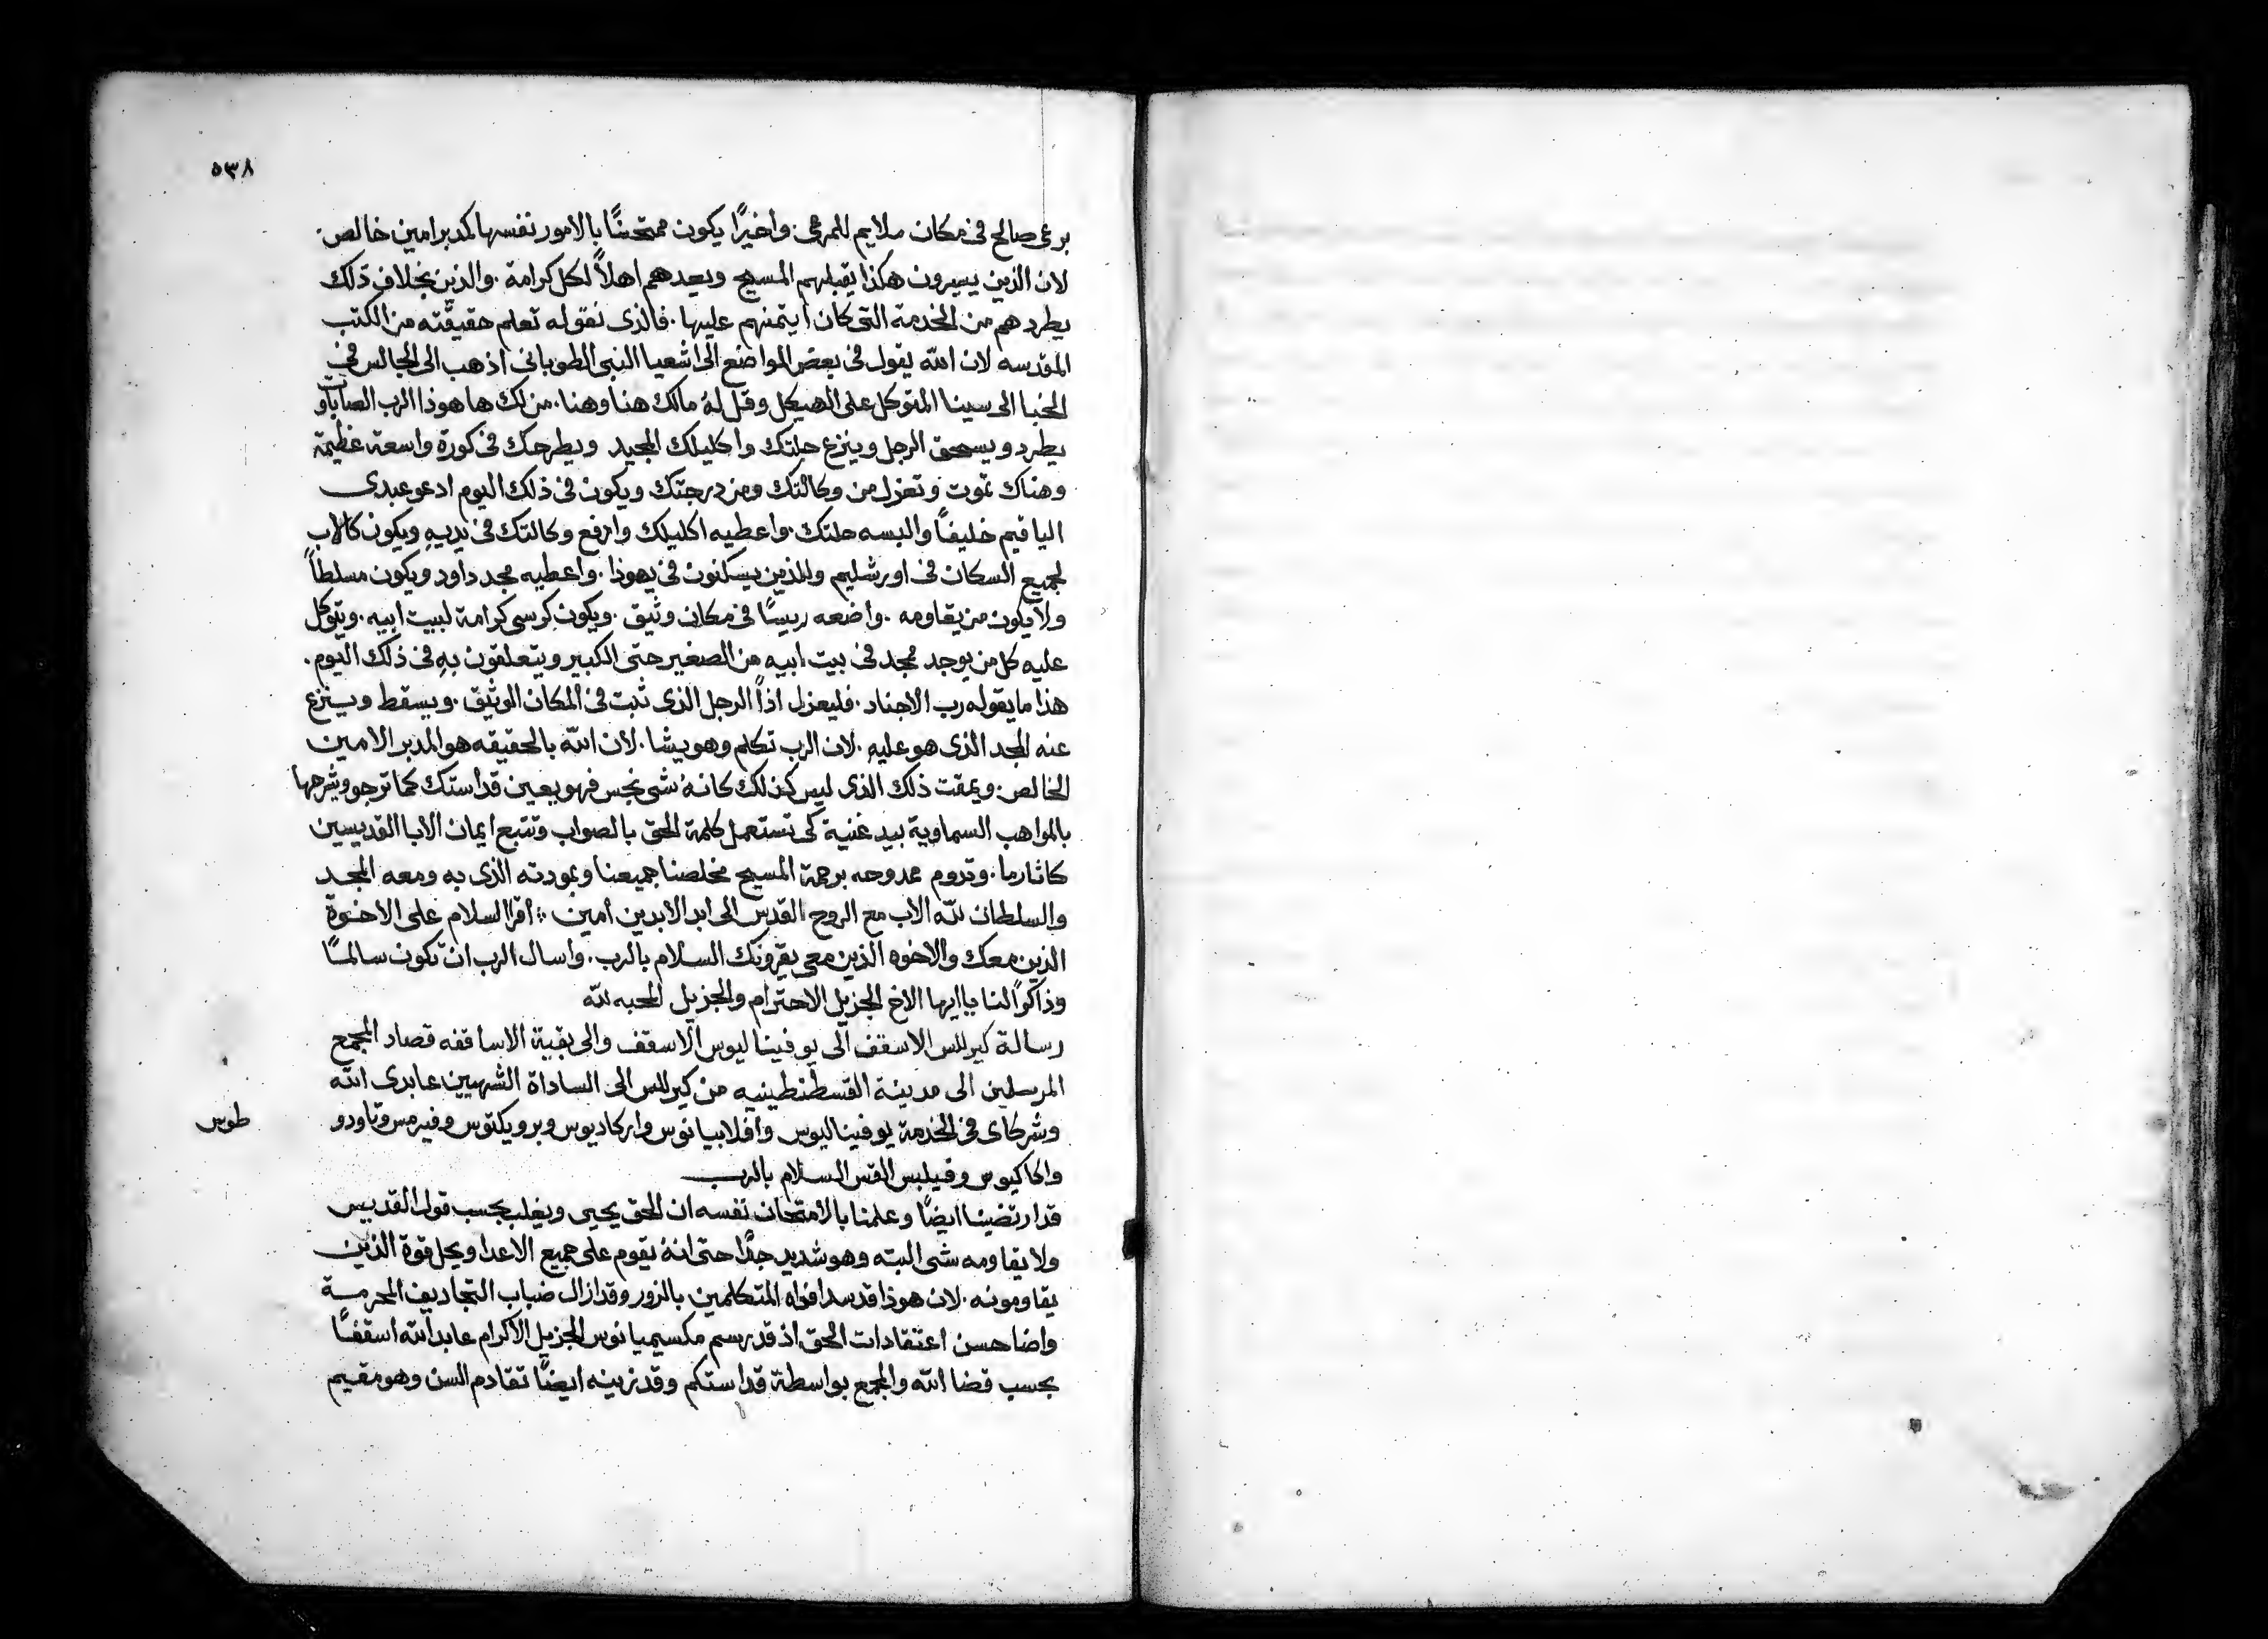 ٥٣٨
برعى صالح فى مكان ملايم للمرعى. واخيرًا يكون ممتحنًا بالامور نفسها كمدبر امين خالص.
لان الذين يسيرون هكذا يقبلهم المسيح ويعدهم اهلاً لكل كرامة. والذين بخلاف ذلك
يطردهم من الخدمة التى كان ايتمنهم عليها. فالذى نقوله تعلم حقيقته من الكتب
المقدسه لان الله يقول فى بعض المواضع الى اشعيا النبى الطوبانى اذهب الى الجالس فى
الخبا الى سينا المتوكل على الهيكل وقل له مالك هنا وهنا. من لك ها هوذا الرب الصاباوت
يطرد ويسحق الرجل وينزع حلتك واكليلك المجيد ويطرحك فى كورة واسعة عظيمة
وهناك تموت وتعزل من وكالتك ومن درجتك ويكون فى ذلك اليوم ادعو عبدى
الياقيم خليفًا والبسه حلتك. واعطيه اكليلك وارفع وكالتك فى يديه ويكون كالاب
لجميع السكان فى اورشليم وللذين يسكنون فى يهوذا. واعطيه مجد داود ويكون مسلطاً
ولا يكون من يقاومه. واضعه ريسًا فى مكان وثيق. ويكون كرسى كرامة لبيت ابيه. ويتوكل
عليه كل من يوجد مجد فى بيت ابيه من الصغير حتى الكبير ويتعلقون به فى ذلك اليوم.
هذا ما يقوله رب الاجناد. فليعزل اذاً الرجل الذى ثبت فى المكان الوثيق. ويسقط وينزع
عنه المجد الذى هو عليه. لان الرب تكلم وهو يشا. لان الله بالحقيقه هو المدبر الامين
الخالص. ويمقت ذلك الذى ليس كذلك كانه شى نجس فهو يعين قداستك كما ترجو ويشرحها
بالمواهب السماوية بيد غنية كى تستعمل كلمة الحق بالصواب وتتبع ايمان الابا القديسين
كاثارما. وتدوم ممدوحه برحمة المسيح مخلصنا جميعنا وبمودته الذى به ومعه المجد
والسلطان لله الاب مع الروح القدس الى ابد الابدين امين ؛ اقرا السلام على الاخوة
الذين معك والاخوه الذين معى يقرونك السلام بالرب. واسال الرب ان تكون سالمًا
وذاكرًا لنا ياايها الاخ الجزيل الاحترام والجزيل المحبه لله
رسالة كيرللس الاسقف الى يوفيناليوس الاسقف والى بقية الاساقفه قصاد المجمع
المرسلين الى مدينة القسطنطينيه من كيرللس الى الساداة الشهيين عابدى الله
وشركاى فى الخدمة يوفيناليوس وافلابيانوس واركاديوس وبرويكتوس وفيرمس وتاودو
طوس
واكاكيوس وفيلبس القس السلام بالرب
قد ارتضينا ايضًا وعلمنا بالامتحان نفسه ان الحق يحيى ويغلب بحسب قول القديس
ولا يقاومه شى البته وهو شديد جدًا حتى انه يقوم على جميع الاعدا ويحل قوة الذين
يقاومونه. لان هوذا قد سد افواه المتكلمين بالزور وقد ازال ضباب التجاديف المحرمة
واضا حسن اعتقادات الحق اذ قد رسم مكسيميانوس الجزيل الاكرام عابد الله اسقفًا
بحسب قضا الله والمجمع بواسطة قداستكم وقد زينه ايضًا تقادم السن وهو مقيم